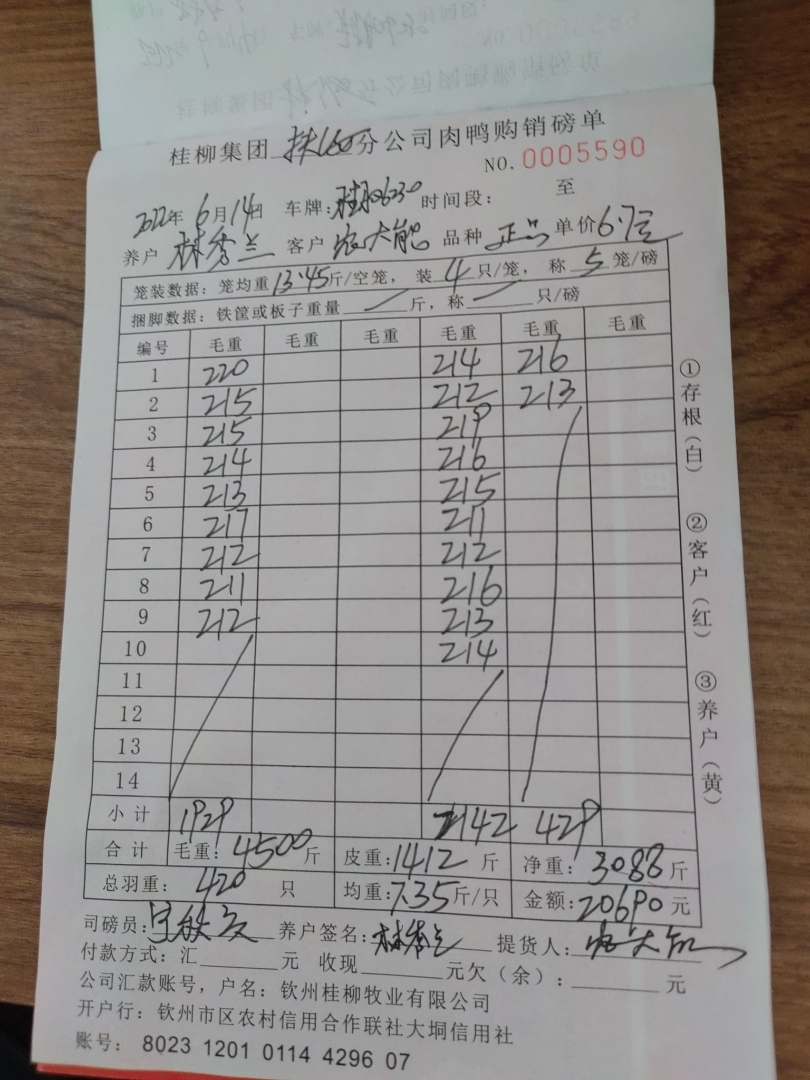 桂柳集团 分公司肉鸭购销磅单
NO. 0005590
2022年 6月14日 车牌: 时间段: 至
养户 林秀兰 客户 品种 正品 单价 6.7元
笼装数据: 笼均重 13.45 斤/空笼, 装 4 只/笼, 称 5 笼/磅
捆脚数据: 铁筐或板子重量 斤, 称 只/磅
编号 毛重 毛重 毛重 毛重 毛重 毛重
1 220 214 216
2 215 212 213
3 215 219
4 214 216
5 213 215
6 217 211
7 212 212
8 211 216
9 212 213
10 214
11
12
13
14
小计 1929 2142 429
合计 毛重: 4500 斤 皮重: 1412 斤 净重: 3088 斤
总羽重: 420 只 均重: 7.35 斤/只 金额: 20690 元
司磅员: 养户签名: 林秀兰 提货人:
付款方式: 汇 元 收现 元欠(余): 元
公司汇款账号, 户名: 钦州桂柳牧业有限公司
开户行: 钦州市区农村信用合作联社大垌信用社
账号: 8023 1201 0114 4296 07
①存根(白) ②客户(红) ③养户(黄)